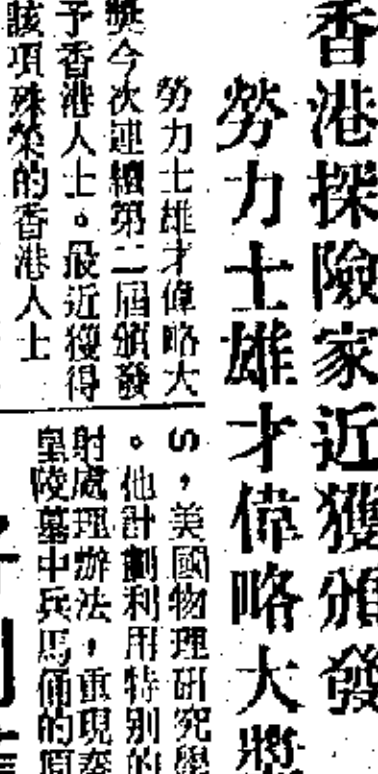 香港探險家近獲頒發
勞力士雄才偉略大獎
勞力士雄才偉略大
獎今次連續第二屆頒發
予香港人士。最近獲得
該項殊榮的香港人士
S,美國物理研究學
。他計劃利用特別的
射處理辦法,重現秦
皇陵墓中兵馬俑的原